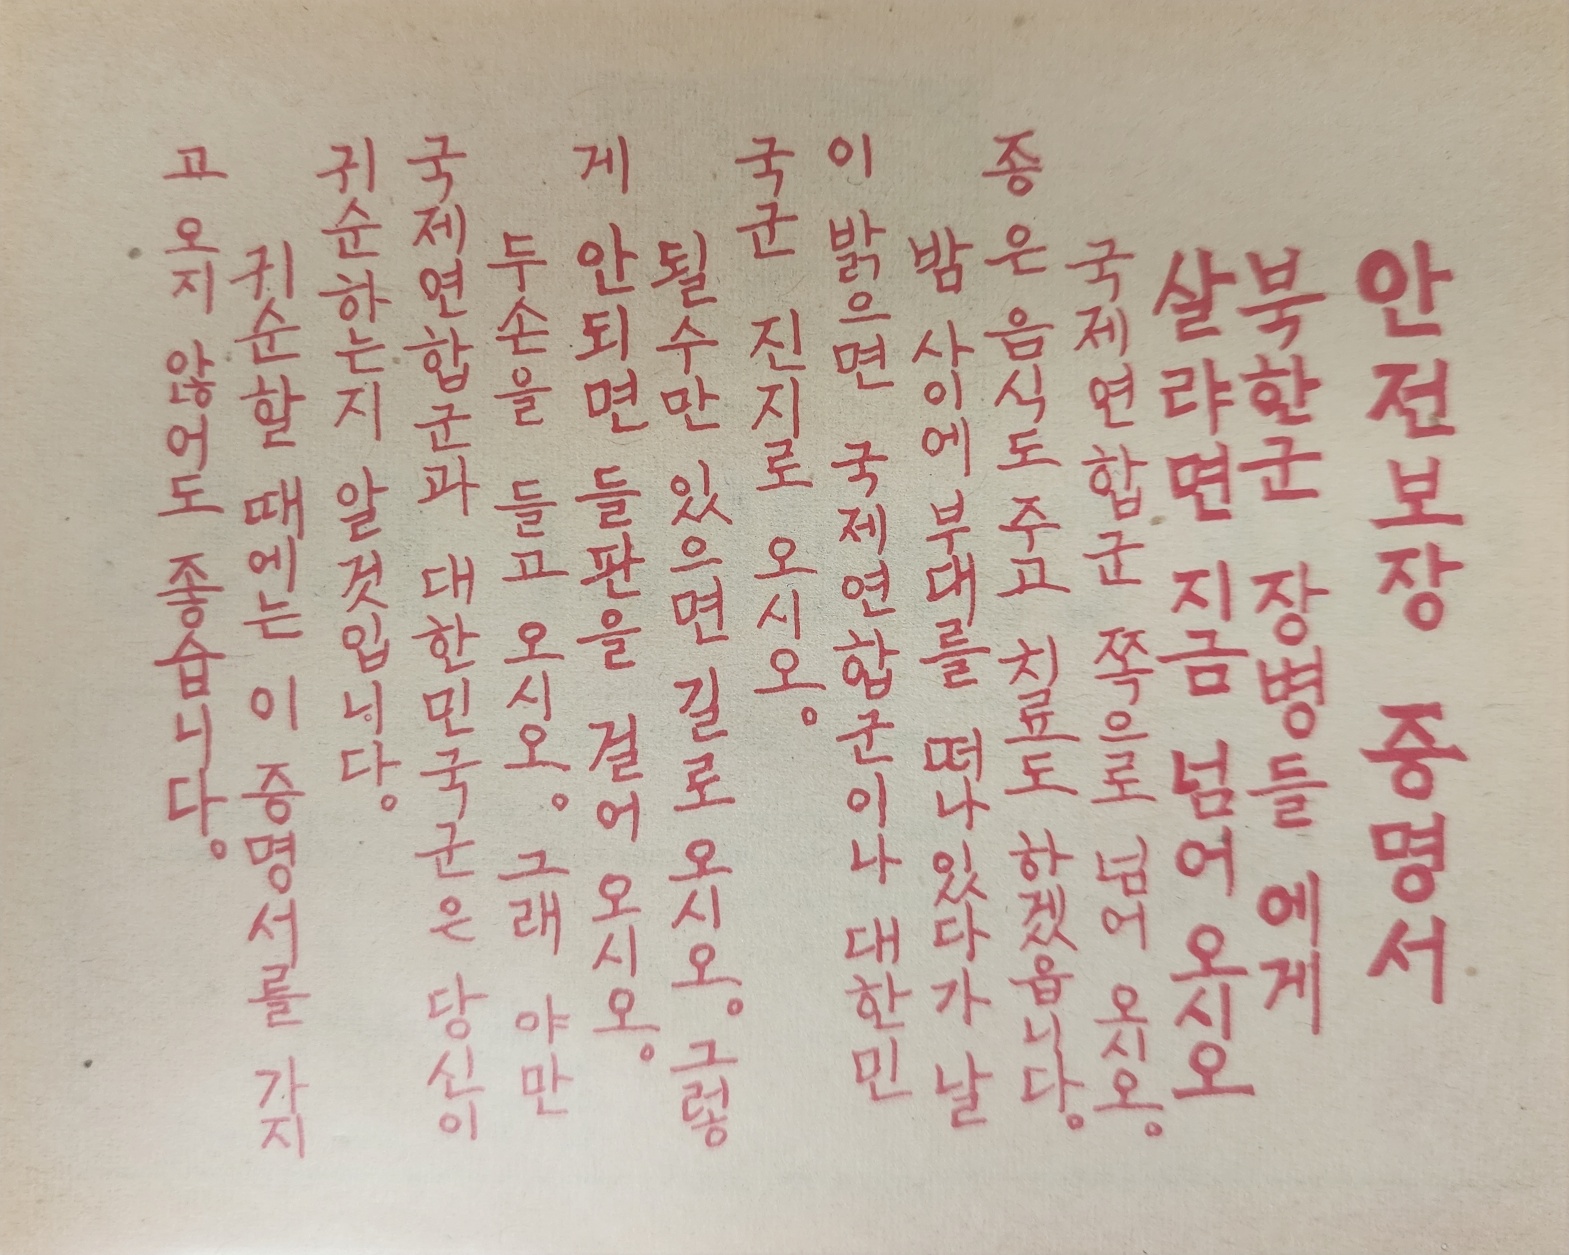 안전보장 증명서
북한군 장병들 에게
살랴면 지금 넘어 오시오
국제연합군 쪽으로 넘어 오시오。
좋은 음식도 주고 치료도 하겠읍니다。
밤 사이에 부대를 떠나 있다가 날
이 밝으면 국제연합군이나 대한민
국군 진지로 오시오。
될수만 있으면 길로 오시오。그렇
게 안되면 들판을 걸어 오시오。
두손을 들고 오시오。그래 야만
국제연합군과 대한민국군은 당신이
귀순하는지 알것입니다。
귀순할 때에는 이 증명서를 가지
고 오지 않어도 좋습니다。